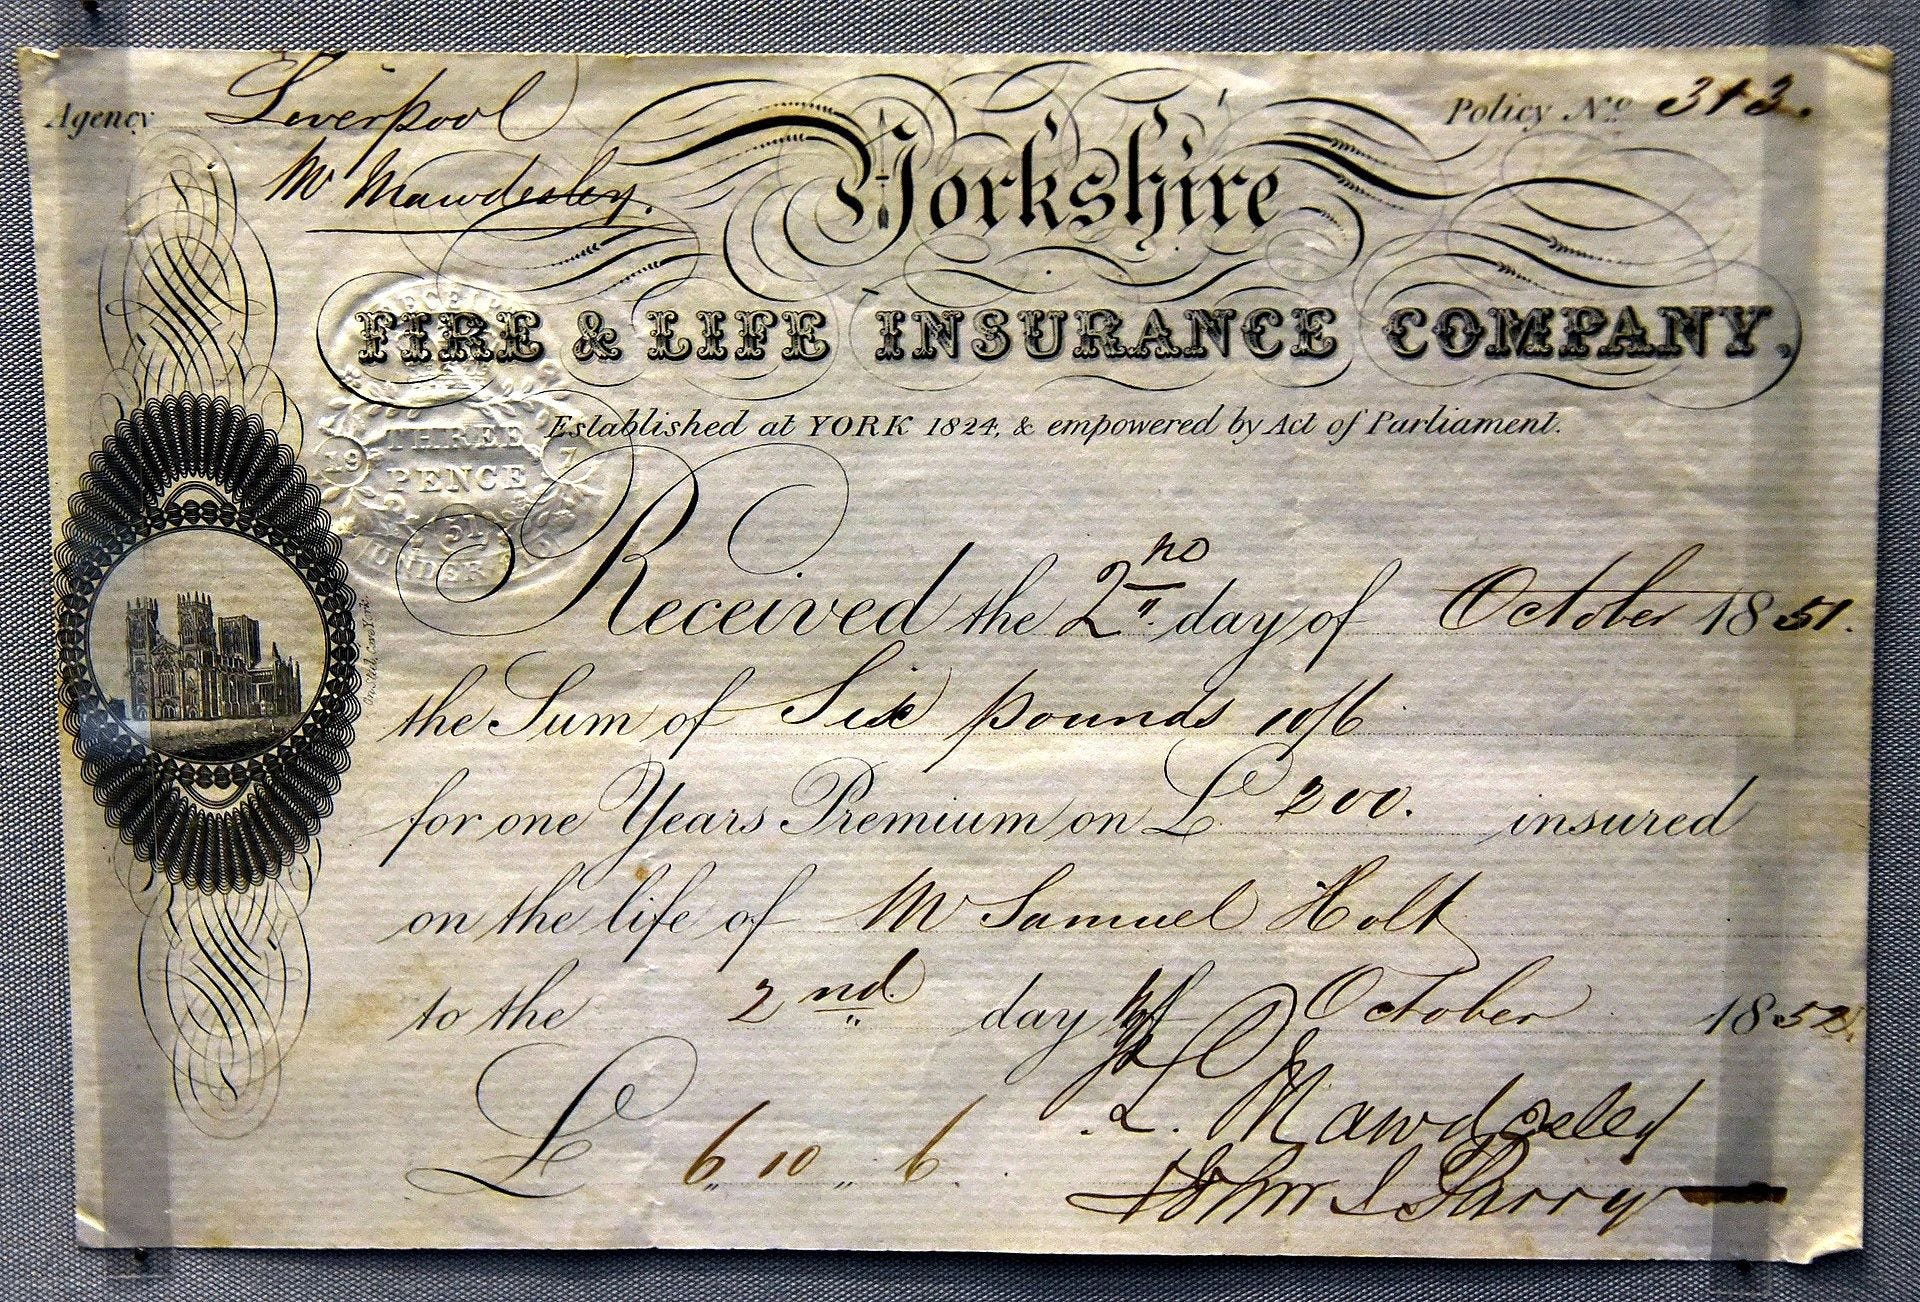 Agency Liverpool
Policy No. 313.
Mr Mawdesley.
Yorkshire
FIRE & LIFE INSURANCE COMPANY,
Established at YORK 1824, & empowered by Act of Parliament.
RECEIPT
THREE
PENCE
19 7
51
UNDER
Received the 2nd day of October 1851.
the Sum of Six pounds 10/6
for one Years Premium on £ 200. insured
on the life of Mr Samuel Holt
to the 2nd day of October 1852.
£ 6 " 10 " 6
Mawdesley
John S Parry